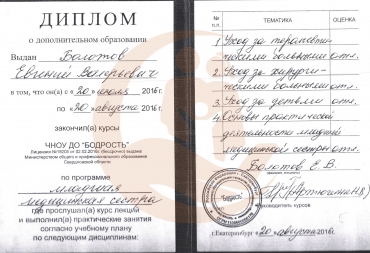 ДИПЛОМ
о дополнительном образовании
Выдан Болотов
Евгений Валерьевич
в том, что он(а) с «20» июля 2016 г.
по «20» августа 2016 г.
закончил(а) курсы
ЧНОУ ДО "БОДРОСТЬ"
Министерством общего и профессионального образования
Свердловской области
по программе
младшая
медицинская сестра
где прослушал(а) курс лекций
и выполнил(а) практические занятия
согласно учебному плану
по следующим дисциплинам:
№ п.п. ТЕМАТИКА ОЦЕНКА
1. Уход за терапевти-
ческими больными отл.
2. Уход за хирурги-
ческими больными отл.
3. Уход за детьми отл.
4. Основы практической
деятельности младшей
медицинской сестры отл.
Болотов Е. В.
"Бодрость"
руководитель курсов
г.Екатеринбург «20» августа 2016 г.